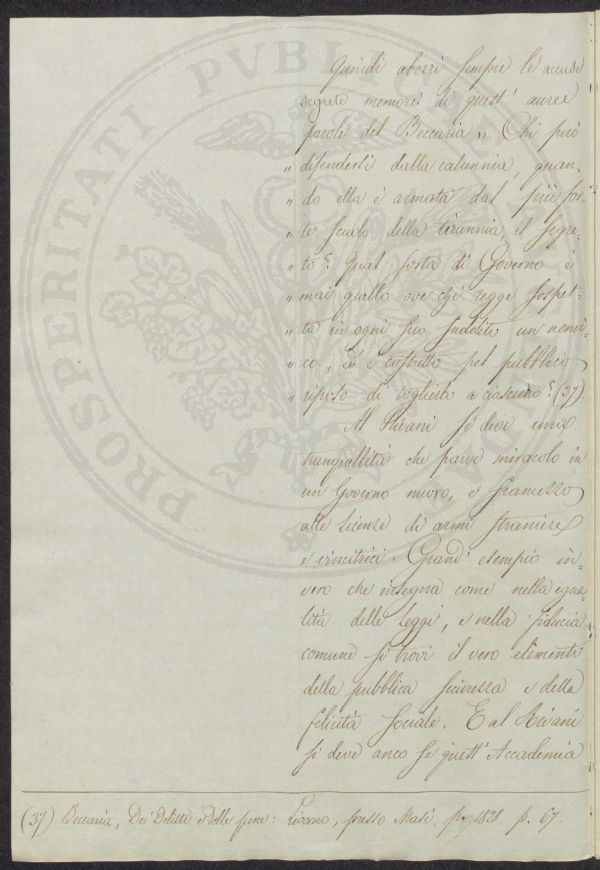 PROSPERITATI PVBLICAE
Quindi aborrì sempre le accuse
segrete memore di quest' auree
parole del Beccaria „ Chi può
„ difendersi dalla calunnia, quan-
do ella è armata dal più for-
„ te scudo della tirannia, il segre-
„ to? Qual sorta di Governo è
„ mai quello ove chi regge sospet-
„ ta in ogni suo suddito un nemi-
„ co, ed è costretto pel pubblico
„ riposo di toglierlo a ciascuno? (37)
Al Rivani si deve una
tranquillità che parve miracolo in
un Governo nuovo, e frammezzo
alle licenze di armi straniere
e vincitrici. Grand' esempio in-
vero che insegna come nella egua-
lità delle Leggi, e nella fiducia
comune si trovi il vero elemento
della pubblica sicurezza e della
felicità sociale. E al Rivani
si deve anco se quest' Accademia
(37) Beccaria, Dei Delitti e delle pene: Livorno, presso Masi. 1828. p. 67.